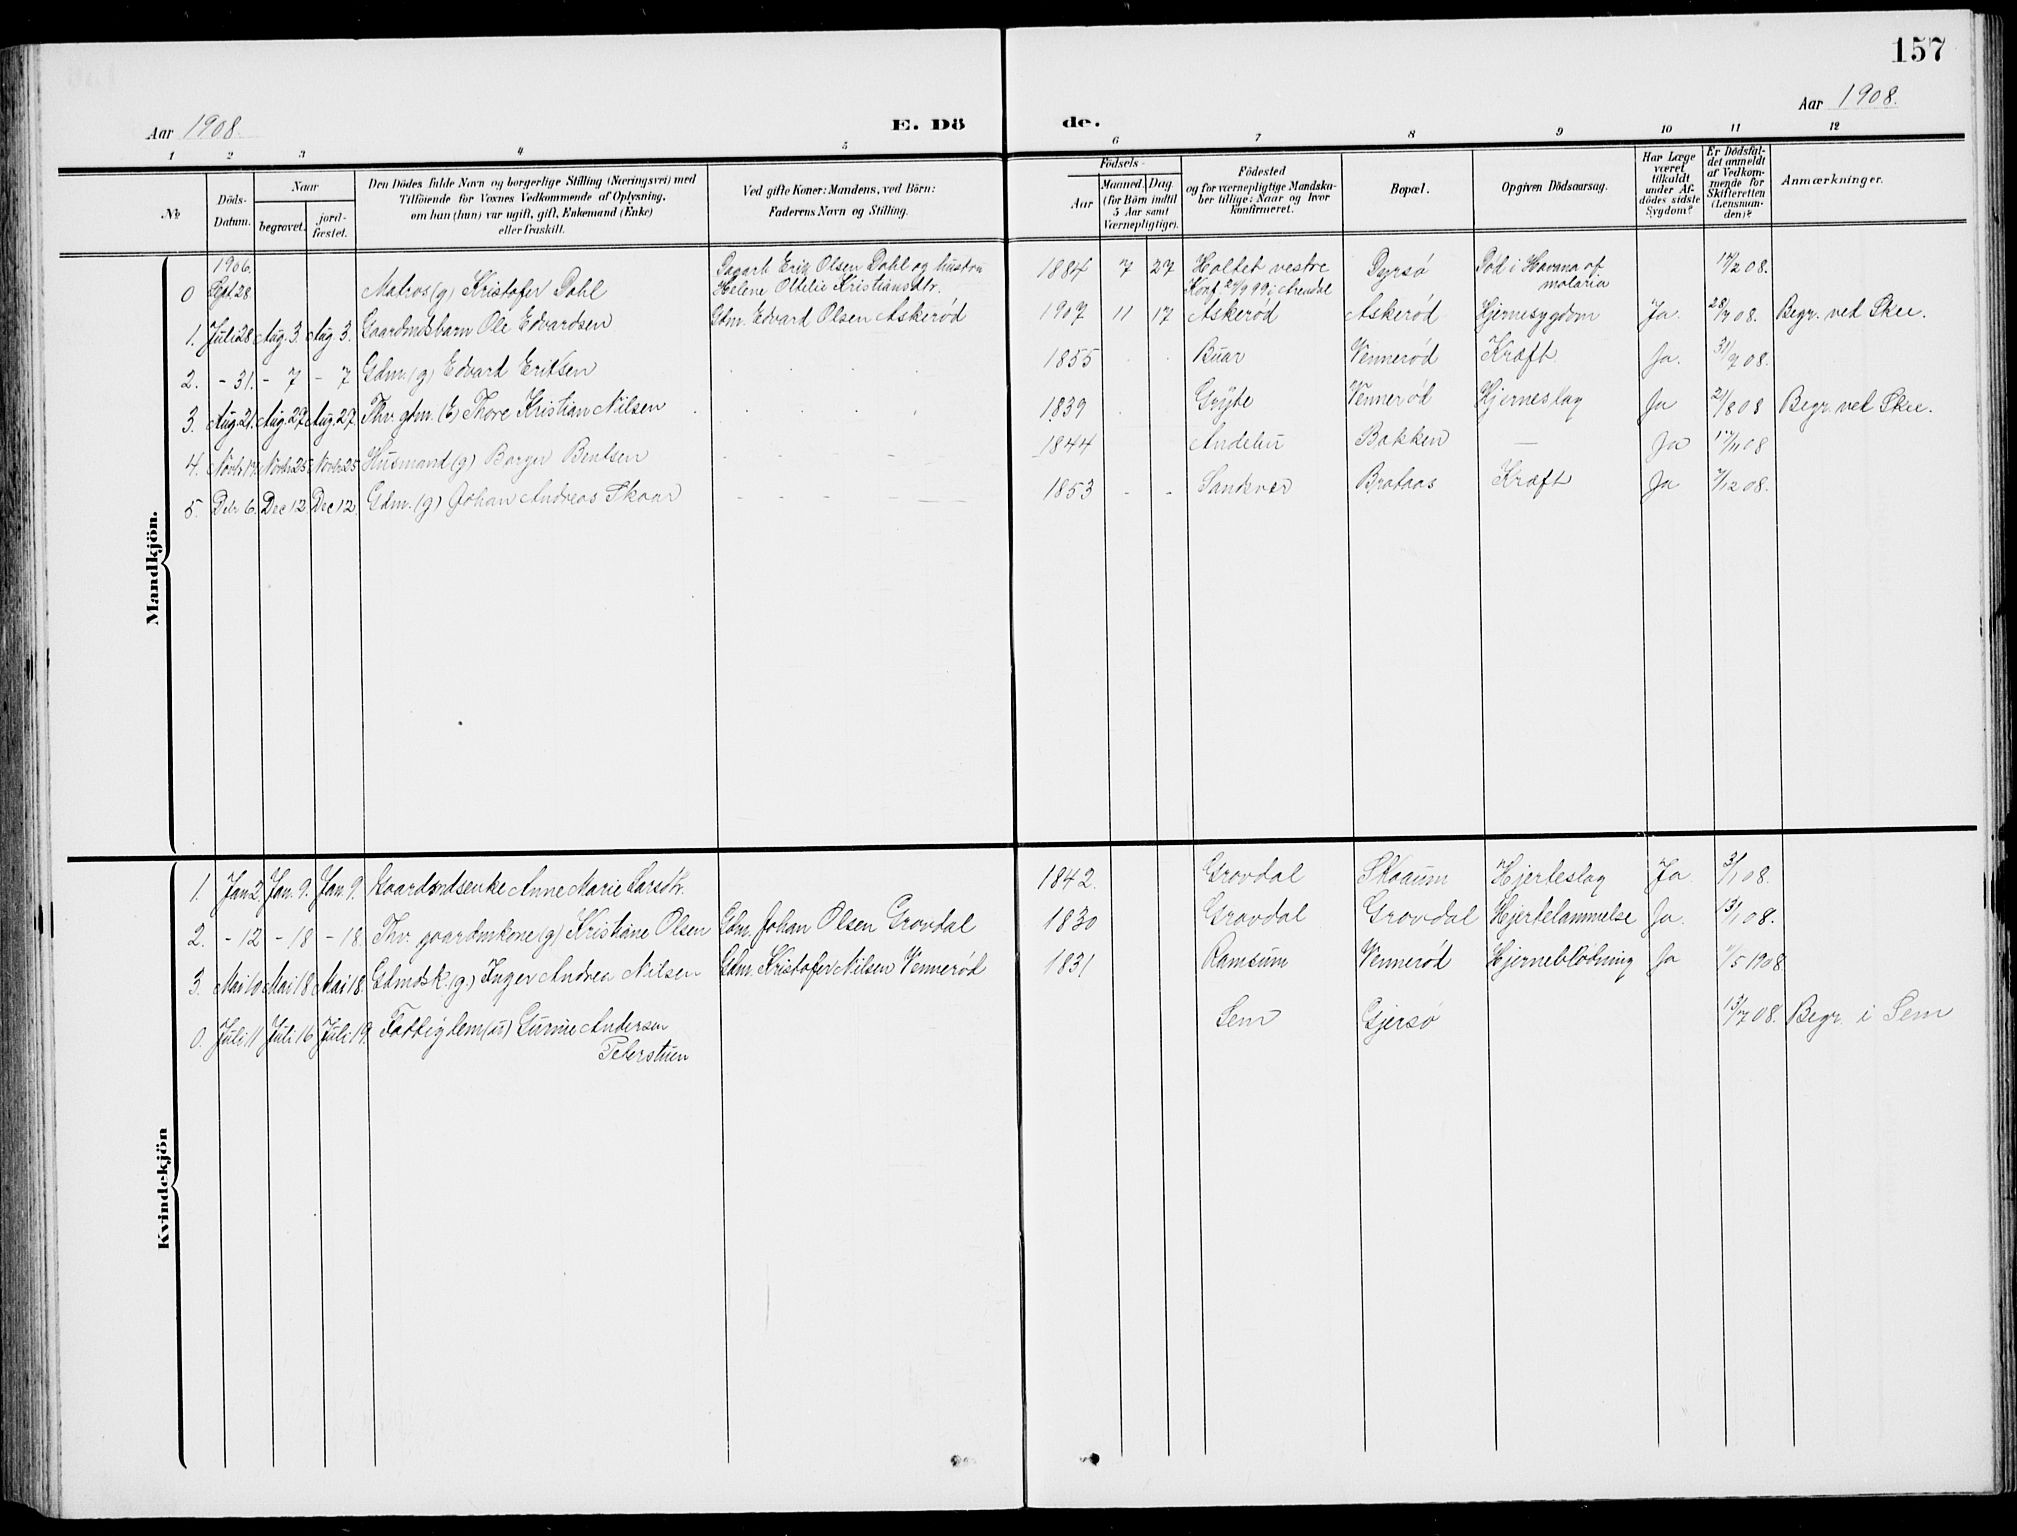 157
Aar 1908.
E. Dö
de.
Aar 1908.
1 2 3 4 5 6 7 8 9 10 11 12
№
Döds-
Datum.
Naar
begravet.
jord-
fæstet.
Den Dödes fulde Navn og borgerlige Stilling (Næringsvei) med
Tilföiende for Voxnes Vedkommende af Oplysning,
om han (hun) var ugift, gift, Enkemand (Enke)
eller fraskilt.
Ved gifte Koner: Mandens, ved Börn:
Faderens Navn og Stilling.
Födsels-
Aar
Maaned. Dag.
(for Börn indtil
5 Aar samt
Værnepligtige).
Födested
og for værnepligtige Mandska-
ber tillige: Naar og hvor
konfirmeret.
Bopæl.
Opgiven Dödsaarsag.
Har Læge
været
tilkaldt
under Af-
dödes sidste
Sygdom?
Er Dödsfal-
det anmeldt
af Vedkom-
mende for
Skifteretten
(Lensman-
den)?
Anmærkninger.
Mandkjön.
1906.
0 Sept 28 Matros (g) Kristofer Dahl Dagarb Erik Olsen Dahl og hustru
Helene Ottilie Kristiansdtr. 1884 7 27 Holtet vestre
Konf 24/9 99 i Arendal Dyrsø Död i Havana af
malaria 17/2 08.
1. Juli 28 Aug. 3. Aug. 3. Gaardmdsbarn Ole Edvardsen Gdm. Edvard Olsen Askerød 1907 11 17 Askerød Askerød Hjernesygdom Ja. 28/7 08. Begr. ved Skee.
2. - 31. - 7 - 7 Gdm. (g) Edvard Eriksen 1855 Buar Vennerød Kræft Ja. 31/7 08.
3. Aug. 21. Aug. 27 Aug. 27 Fhv. gdm. (E) Thore Kristian Nilsen 1839 Gryte Vennerød Hjerneslag Ja 21/8 08 Begr. ved Skee.
4. Novbr 17. Novbr 25 Novbr 25 Husmand (g) Borger Bentsen 1844 Andebu Bakken — Ja 17/11 08
5. Debr 6. Dec 12 Dec 12 Gdm. (g) Johan Andreas Skaar 1853 Sandsvær Brataas Kræft Ja 7/12 08.
Kvindekjön
1. Jan 2 Jan. 9. Jan. 9. Gaardmdsenke Anne Marie Larsdtr. 1842. Gravdal Skaaum Hjerteslag Ja. 3/1 08.
2. - 12 - 18 - 18. Fhv. gaardmkone (g) Kristiane Olsen Gdm. Johan Olsen Gravdal 1830 Gravdal Gravdal Hjertelammelse Ja. 13/1 08.
3. Mai 10 Mai 18 Mai 18. Gdmdsk. (g.) Inger Andrea Nilsen Gdm. Kristofer Nilsen Vennerød 1831 Ramsum Vennerød Hjerneblødning Ja 11/5 1908
0. Juli 11 Juli 16 Juli 19. Fattiglem (u) Gurine Andersen
Peterstuen Sem Gjersø 13/7 08. Begr. i Sem